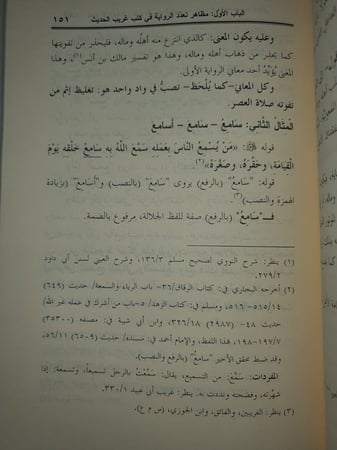 الباب الأول: مظاهر تعدّد الرواية في كتب غريب الحديث
١٥١
وعليه يكون المعنى: كالذي انتزع منه أهلُه وماله، فليحذر من تفويتها
كما يحذر من ذهاب أهله وماله، وهذا هو تفسير مالك بن أنس(١)، وهذا
المعنى يُؤيّد أحد معاني الرواية الأولى.
وكل المعاني -كما يُلْحَظ- تصبُّ في وادٍ واحد هو: تغليظ إثم من
تفوته صلاة العصر.
المثال الثاني: سَامِعُ - سامِعَ - أسامِعَ
قوله ﷺ: «مَنْ يُسَمِّعِ النَّاسَ بِعَمَلِهِ سَمَّعَ اللهُ بِهِ سَامِعُ خَلْقِهِ يَوْمَ
الْقِيَامَةِ، وحَقَّرَهُ، وصَغَّرَهُ»(٢).
قوله: "سَامِعُ" (بالرفع) يروى "سَامِعَ" (بالنصب) و"أسامعَ" (بزيادة
الهمزة والنصب)(٣).
فـ"سَامِعُ" (بالرفع) صفة للفظ الجلالة، مرفوع بالضمة.
(١) ينظر: شرح النووي لصحيح مسلم ١٣٦/٣، وشرح العيني لسنن أبي داود
٢٧٩/٢.
(٢) أخرجه البخاري في: كتاب الرقاق/٣٦- باب الرياء والسمعة/ حديث (٦٤٩)
٥١٥/١٤-٥١٦، ومسلم في: كتاب الزهد/٥-باب من أشرك في عمله غير الله/
حديث ٤٨- (٢٩٨٧) ٣٢٦/١٨، وابن أبي شيبة في: مصنفه (٣٥٣٠٠)
١٩٧/٧-١٩٨، بهذا اللفظ، والإمام أحمد في: مسنده/ حديث (٦٥٠٩) ٥٦/١١،
وقد ضبط محقق الأخير "سامعُ" (بالرفع والنصب).
المفردات: سَمَّعَ: من التسميع، يقال: سَمَّعْتُ بالرجل تسميعاً، وتسمعة: إذا
شهّرته، وفضحته ونددت به. ينظر: غريب أبي عبيد ٣٣٠/١.
(٣) ينظر: الغريبين، والفائق، وابن الجوزي، (س م ع).